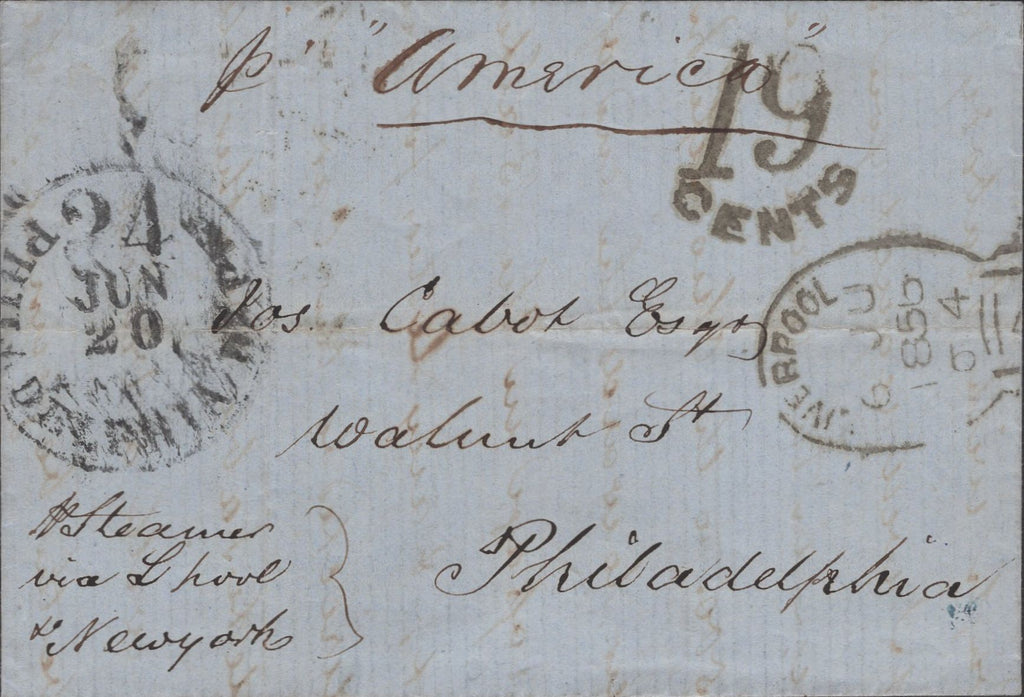 p' "America"
19
CENTS
24
JUN
20
LIVERPOOL
6 JU
Jos. Cabot Esqr
Walnut St
Philadelphia
Steamer
via L'pool
& Newyork